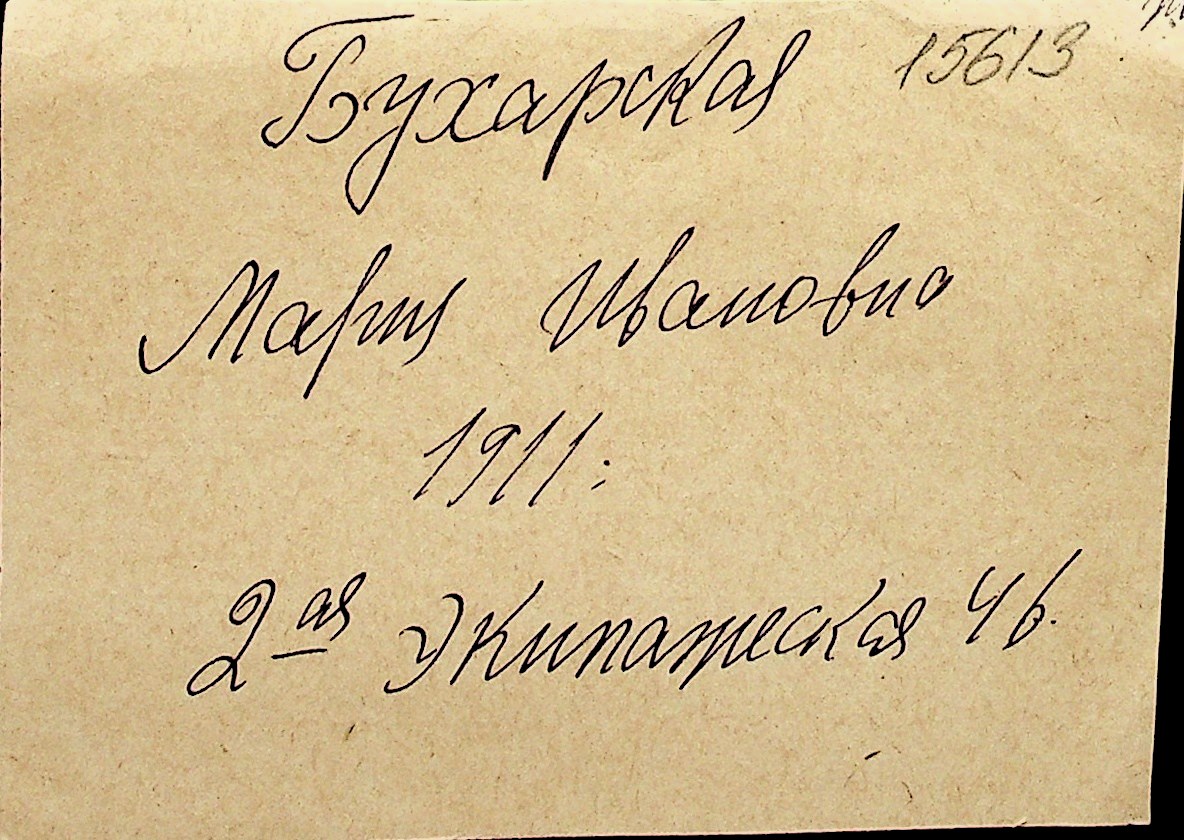 Бухарская 15613
Мария Ивановна
1911:
2ая Экипажеская 46.